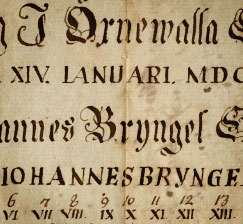 I Öxnewalla
XIV. IANUARI. MDC
annes Bryngel
IOHANNES BRYNGEL
6 7 8 9 10 11 12 13
VI VII VIII. IX X XI. XII XIII